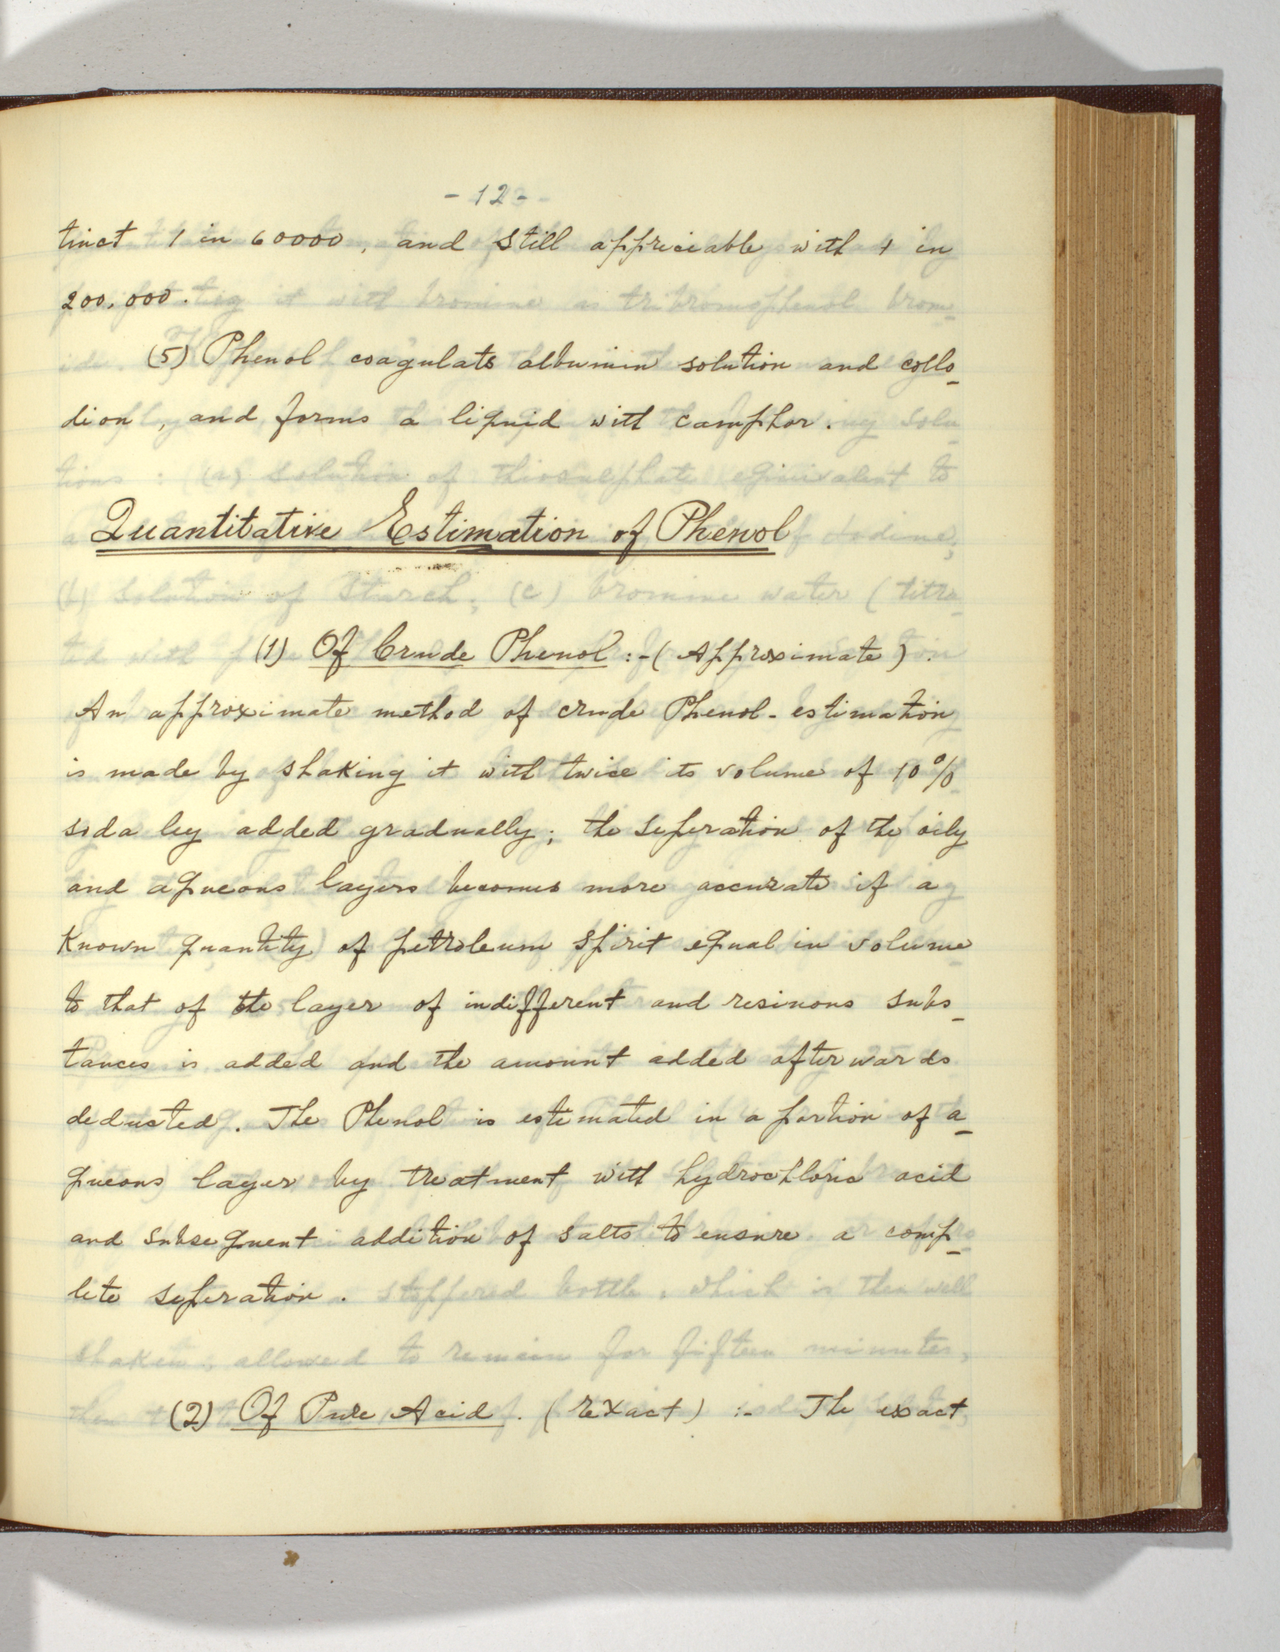 - 12 -
tinct 1 in 60000, and still appriciable with 1 in
200,000.
(5) Phenol coagulats albumin solution and collo-
dion, and forms a liquid with camphor.
Quantitative Estimation of Phenol
(1) Of Crude Phenol :- (Approximate).
An approximate method of crude Phenol-estimation
is made by shaking it with twice its volume of 10%
soda ley added gradually; the seperation of the oily
and aqueous layers becomes more accurate if a
known quantity of petroleum spirit equal in volume
to that of the layer of indifferent and resinous subs-
tances is added and the amount added afterwards
deducted. The Phenol is estimated in a portion of a-
queous layer by treatment with hydrochloric acid
and subsequent addition of salts to ensure a comp-
lete seperation.
(2) Of Pure Acid. (Exact) :- The exact